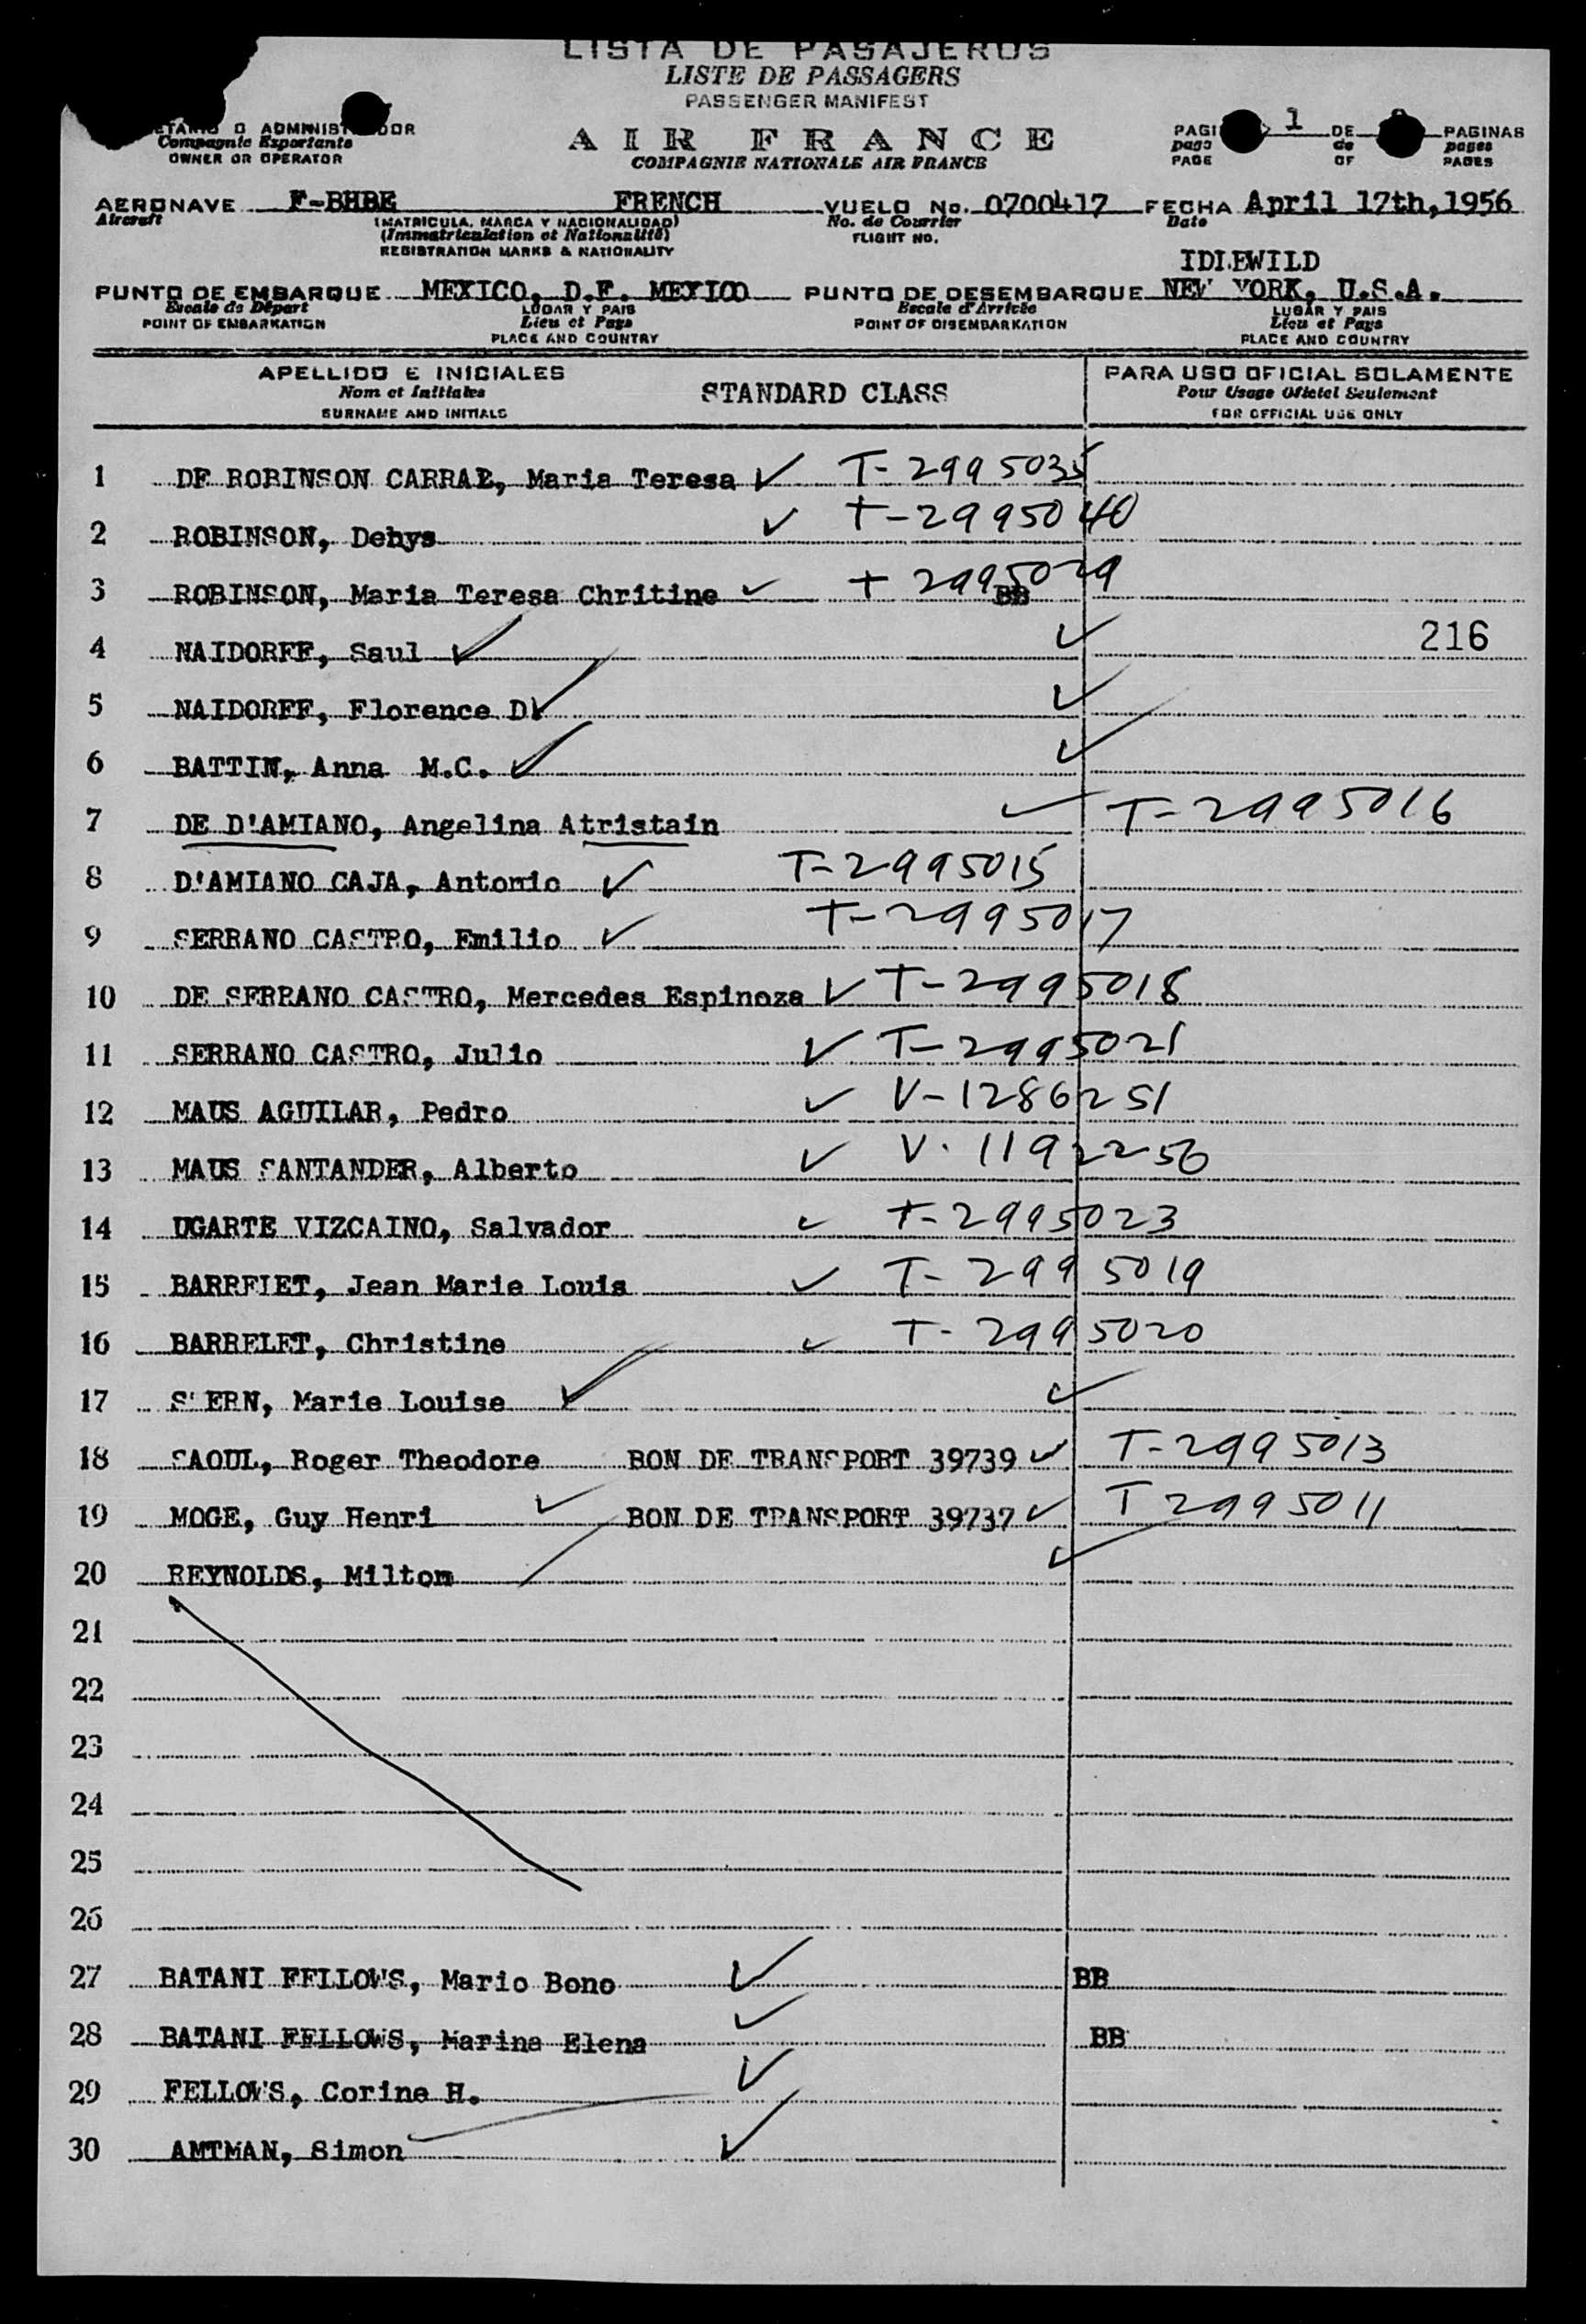 LISTA DE PASAJEROS
LISTE DE PASSAGERS
PASSENGER MANIFEST
AIR FRANCE
COMPAGNIE NATIONALE AIR FRANCE
O ADMINIST DOR
Compagnie Exportante
OWNER OR OPERATOR
PAGI 1 DE PAGINAS
page de pages
PAGE OF PAGES
AERONAVE F-BHBE FRENCH VUELO No. 0700417 FECHA April 17th, 1956
Aircraft (MATRICULA, MARCA Y NACIONALIDAD) No. de Courrier Date
(Immatriculation et Nationalité) FLIGHT NO.
REGISTRATION MARKS & NATIONALITY
IDLEWILD
PUNTO DE EMBARQUE MEXICO, D.F. MEXICO PUNTO DE DESEMBARQUE NEW YORK, U.S.A.
Escale de Départ LUGAR Y PAIS Escale d'Arrivée LUGAR Y PAIS
POINT OF EMBARKATION Lieu et Pays POINT OF DISEMBARKATION Lieu et Pays
PLACE AND COUNTRY PLACE AND COUNTRY
APELLIDO E INICIALES STANDARD CLASS PARA USO OFICIAL SOLAMENTE
Nom et Initiales Pour Usage Officiel Seulement
SURNAME AND INITIALS FOR OFFICIAL USE ONLY
1 DE ROBINSON Maria Teresa ✓ T-2995035
2 ROBINSON, Denys ✓ T-2995040
3 ROBINSON, Maria Teresa Chritine ✓ T 2995039 BB
4 NAIDORFF, Saul ✓ ✓ 216
5 NAIDORFF, Florence D. ✓ ✓
6 BATTIN, Anna M.C. ✓ ✓
7 DE D'AMIANO, Angelina Atristain ✓ T-2995016
8 D'AMIANO CAJA, Antonio ✓ T-2995015
9 SERRANO CASTRO, Emilio ✓ T-2995017
10 DE SERRANO CASTRO, Mercedes Espinoza ✓ T-2995018
11 SERRANO CASTRO, Julio ✓ T-2995021
12 MAUS AGUILAR, Pedro ✓ V-1286251
13 MAUS SANTANDER, Alberto ✓ V-1192256
14 UGARTE VIZCAINO, Salvador ✓ T-2995023
15 Jean Marie Louis ✓ T-2995019
16 BARRELET, Christine ✓ T-2995020
17 S'ERN, Marie Louise ✓ ✓
18 SAOUL, Roger Theodore BON DE TRANSPORT 39739 ✓ T-2995013
19 MOGE, Guy Henri ✓ BON DE TRANSPORT 39737 ✓ T 2995011
20 REYNOLDS, Milton ✓
21
22
23
24
25
26
27 BATANI FELLOWS, Mario Bono ✓ BB
28 BATANI FELLOWS, Marina Elena ✓ BB
29 FELLOWS, Corine H. ✓
30 AMTMAN, Simon ✓